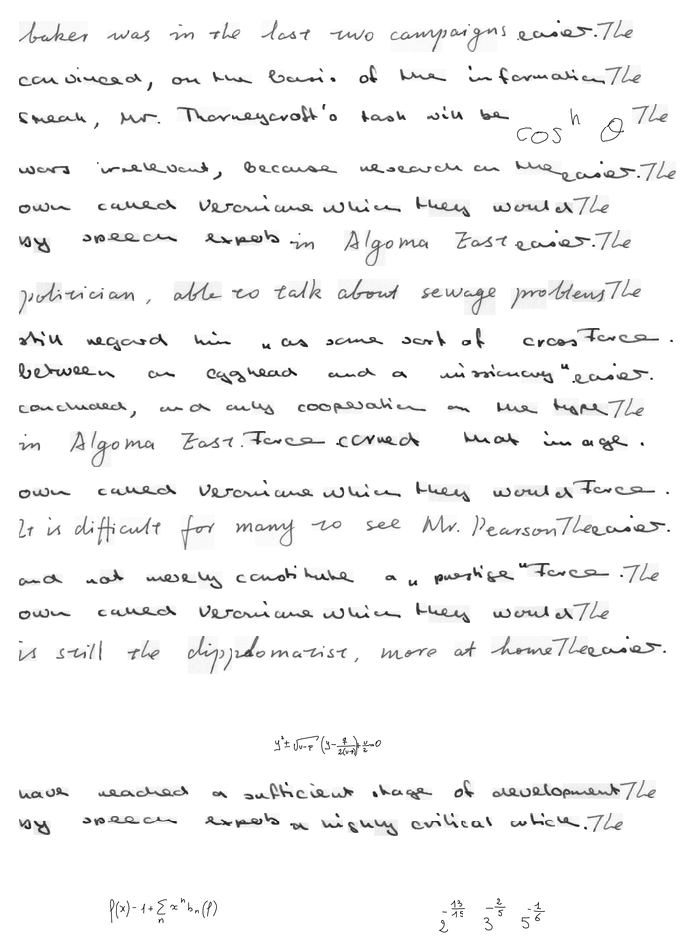 baker was in the last two campaigns easier. The
convinced, on the basis of the information The
Smeah, Mr. Thorneycroft's task will be cos^h θ The
wars irrelevant, because research on the easier. The
own called Veronians which they would The
by speech expects in Algoma East easier. The
politician, able to talk about sewage problems The
still regard him " as some sort of cross Force .
between an egghead and a missionary " easier.
concluded, and only cooperation on the type The
in Algoma East. Force corned that image .
own called Veronians which they would Force .
It is difficult for many to see Mr. Pearson The easier.
and not merely constitute a " prestige " Force . The
own called Veronians which they would The
is still the dippdomatist, more at home The easier.
y^2 ± √(v-p) (y - q/(2(v-p))) + v/2 = 0
have reached a sufficient stage of development The
by speech expects a highly critical article. The
f(x) - 1 + ∑_n x^n b_n(f)
2^{-13/15} 3^{-2/5} 5^{-1/6}